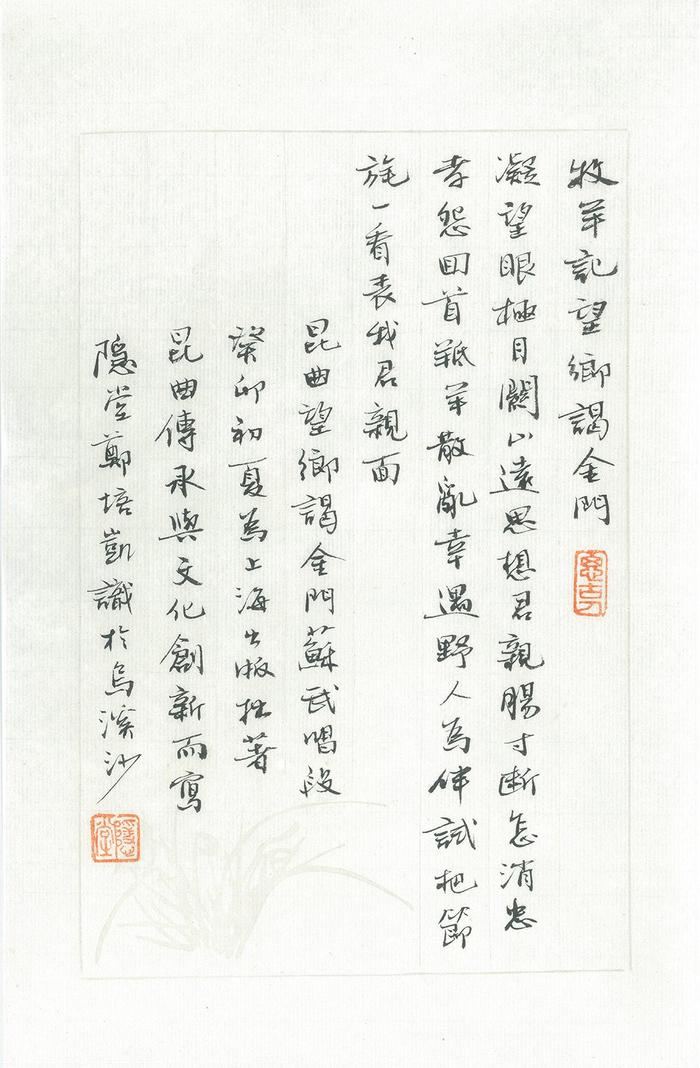 牧羊記望鄉謁金門
凝望眼極目關山遠思想君親腸寸斷怎消忠
孝怨回首羝羊散亂幸遇野人為伴試把節
旄一看表我君親面
昆曲望鄉謁金門蘇武唱段
癸卯初夏為上海出版拙著
昆曲傳承與文化創新而寫
隱堂鄭培凱識於烏溪沙
隱堂